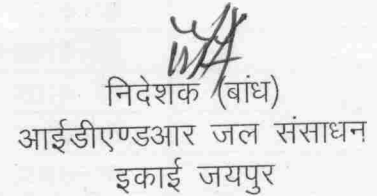 निदेशक (बांध)
आईडीएण्डआर जल संसाधन
इकाई जयपुर